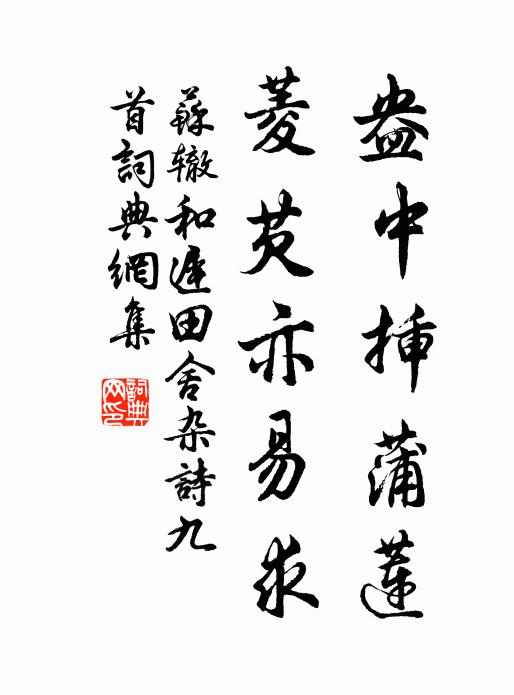 盎中插蒲蓮
菱芡亦易求
蘇轍和遲田舍杂詩九
首詞典網集
詞典
网印